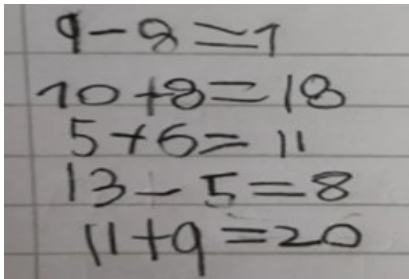 9-8=1
10+8=18
5+6=11
13-5=8
11+9=20